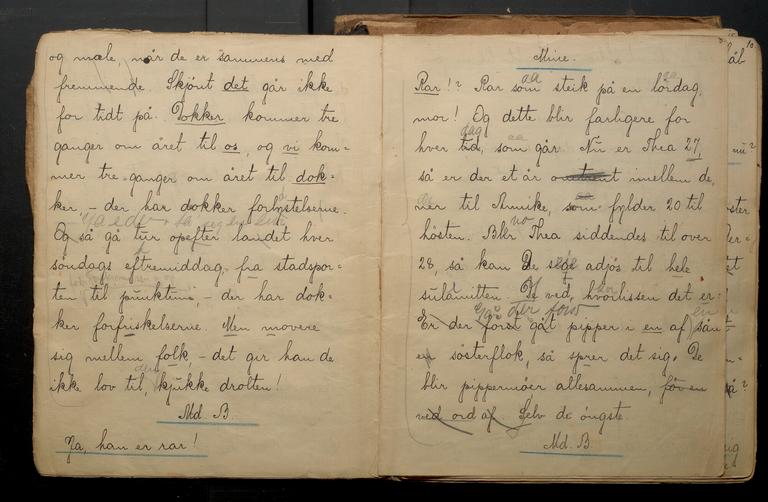 og mæle, når de er sammens med
fremmende. Skjönt det går ikke
for tidt på. Dokker kommer tre
ganger om året til os, og vi kom=
mer tre ganger om året til dok=
ker, – der har dokker forlystelserne.
Og så gå tur opefter landet hver
söndags eftermiddag, fra stadspor=
ten til punktum, – der har dok=
ker forfriskelserne. Men movere
sig mellem folk, – det gir han de
ikke lov til, kjukke drolten!
Md. B.
Ja, han er rar!
Mine.
Rar!? Rar som steik på en lördag,
mor! Og dette blir farligere for
hver tid, som går. Nu er Thea 27,
så er der et år imellem de,
ner til Annike, som fylder 20 til
hösten. Blir Thea siddendes til over
28, så kan De sige adjös til hele
sulamitten. De ved, hvorlissen det er:
Er der först gåt pipper i en af sån
en sösterflok, så sprer det sig. De
blir pippermöer allesammen, för en
ved ord af. Selv de öngste.
Md. B.